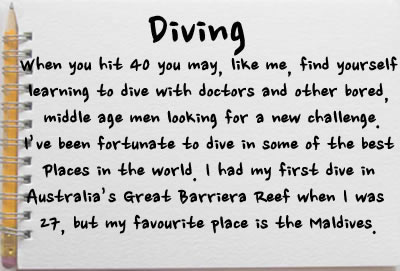 Diving
When you hit 40 you may, like me, find yourself
learning to dive with doctors and other bored,
middle age men looking for a new challenge.
I've been fortunate to dive in some of the best
Places in the world. I had my first dive in
Australia's Great Barriera Reef when I was
27, but my favourite place is the Maldives.